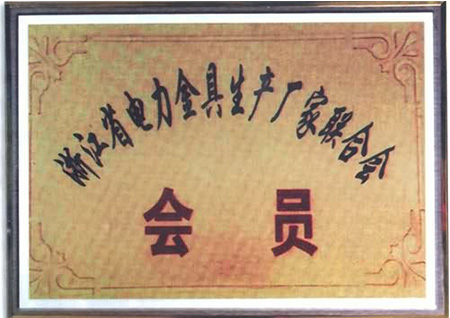 浙江省电力金具生产厂家联合会
会员